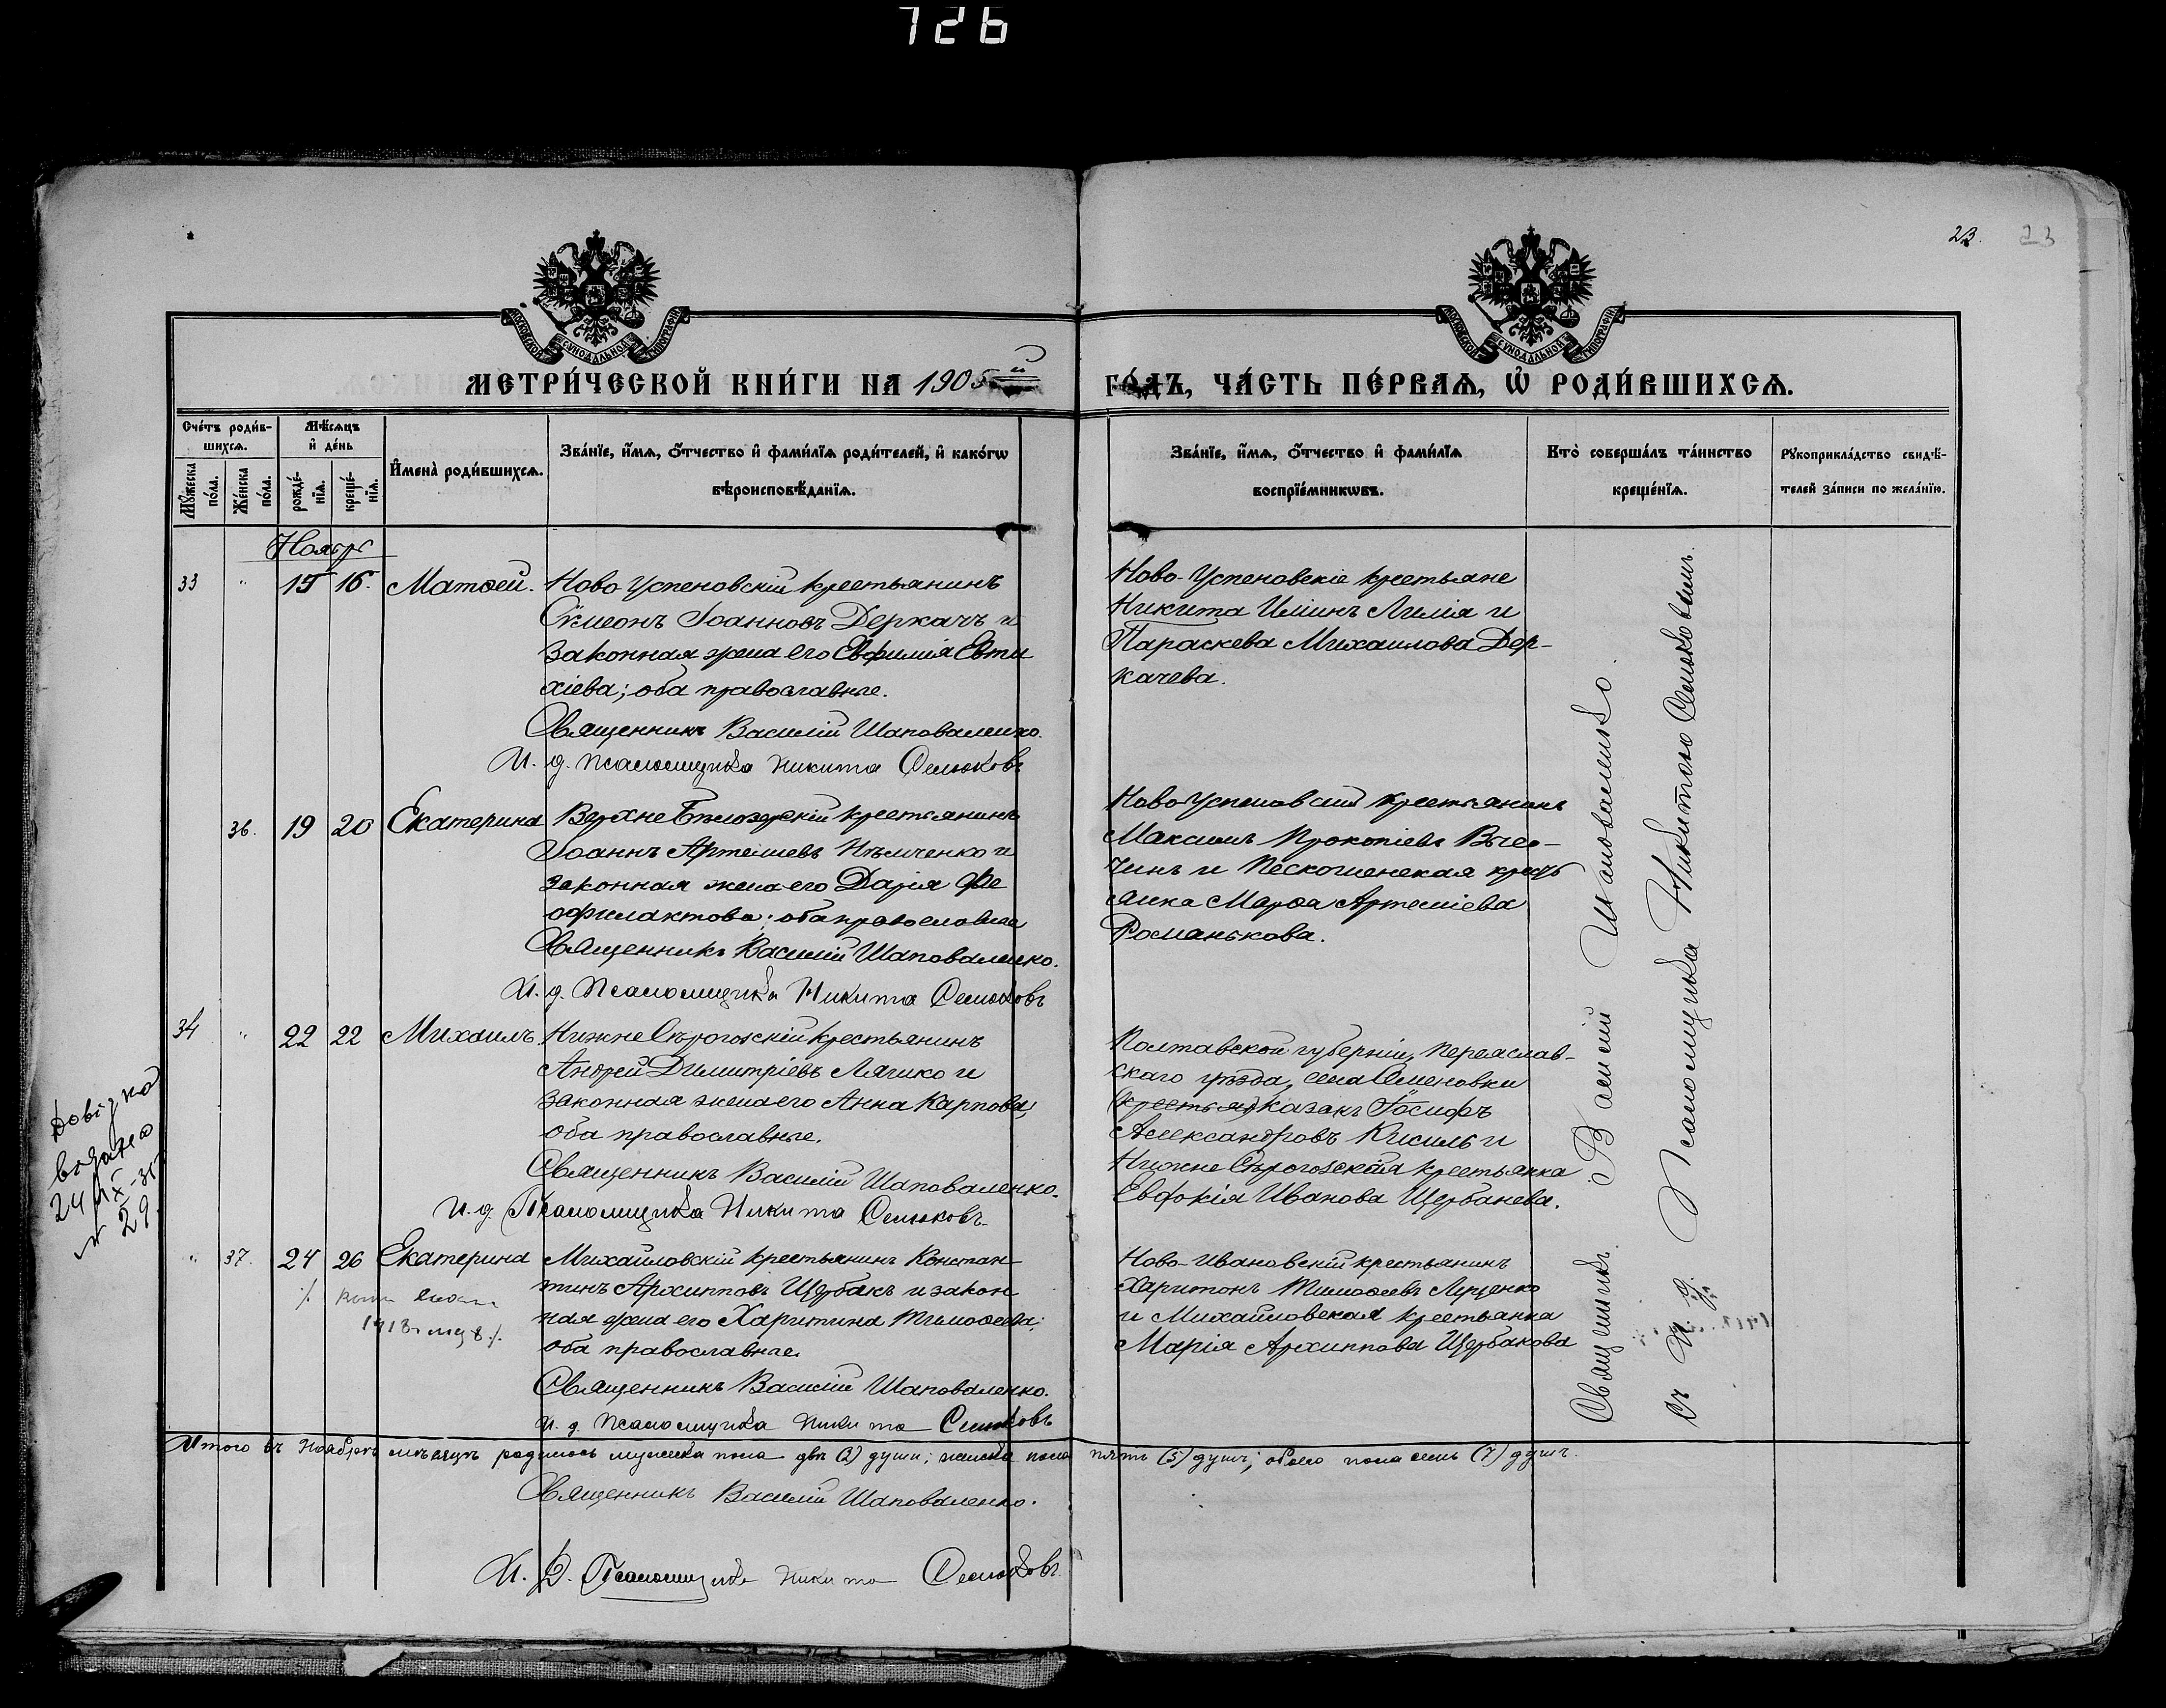 726
23. 23
МОСКОВСКОЙ СѴНОДАЛЬНОЙ ТИПОГРАФІИ
МОСКОВСКОЙ СѴНОДАЛЬНОЙ ТИПОГРАФІИ
МЕТРИ́ЧЕСКОЙ КНИ́ГИ НА 1905й
ГО́ДЪ, ЧА́СТЬ ПЕ́РВАѦ, Ѡ҆ РОДИ́ВШИХСѦ.
Сче́тъ роди́в-
шихсѧ.
Мꙋ́жеска по́ла.
Же́нска по́ла.
Мѣ́сѧцъ
и҆ де́нь
рожде́-
нїѧ.
креще́-
нїѧ.
И҆мена̀ роди́вшихсѧ.
Зва́нїе, и҆́мѧ, ѻ҆́тчество и҆ фами́лїѧ роди́телей, и҆ како́гѡ
вѣроисповѣ́данїѧ.
Зва́нїе, и҆́мѧ, ѻ҆́тчество и҆ фами́лїѧ
воспрїе́мникѡвъ.
Кто̀ соверша́лъ та́инство
креще́нїѧ.
Рꙋкоприкла́дство свидѣ́-
телей за́писи по жела́нїю.
Ноябрь
33 " 15 16. Матѳей. Ново Успеновскій крестьянинъ
Сѵмеонъ Іоанновъ Деркачъ и
законная жена его Евфимія Евти
хіева; оба православные.
Священникъ Василій Шаповаленко.
И. д. псаломщика Никита Селюковъ
Ново-Успеновскіе крестьяне
Никита Иліинъ Лилія и
Параскева Михаилова Дер-
качева.
36. 19 20 Екатерина Верхне Бѣлозерскій крестьянинъ
Іоаннъ Артемиевъ Нѣмченко и
законная жена его Дарія Фе
офилактова; оба православные
Священникъ Василій Шаповаленко.
И. д. Псаломщика Никита Селюковъ
Ново Успеновскій крестьянинъ
Максимъ Прокопіевъ
чинъ и крестъ
янка Марѳа Артеміева
Романькова.
34 " 22 22 Михаилъ Нижне Сѣрогозскій крестьянинъ
Андрей Димитріевъ Лячко и
законная жена его Анна Карпова;
оба православные.
Священникъ Василій Шаповаленко.
И. д. Псаломщика Никита Селюковъ
Полтавской губерніи, Переяслав-
скаго уѣзда, села Семеновки
(крестьян) казакъ Іосифъ
Александровъ Кисиль и
Нижне Сѣрогозская крестьянка
Евдокія Иванова Щербанева.
Довідка
видано
24/IX-35
№ 29.
" 37. 24 26 Екатерина Михайловскій крестьянинъ Констан
тинъ Архипповъ Щербакъ и закон
ная жена его Харитина Тимоѳеева;
оба православные.
Священникъ Василій Шаповаленко.
И. д. псаломщика Никита Селюковъ
Ново-Ивановскій крестьянинъ
Харитонъ Тимоѳеевъ Луценко
и Михайловская крестьянка
Марія Архиппова Щербакова
Священникъ Василій Шаповаленко
съ И. д. Псаломщика Никитою Селюковымъ.
Итого въ Ноябрѣ мѣсяцѣ родилось мужеска пола двѣ (2) души; женска пола пять (5) душъ; обоего пола семь (7) душъ.
Священникъ Василій Шаповаленко.
И. Д. Псаломщика Никита Селюковъ